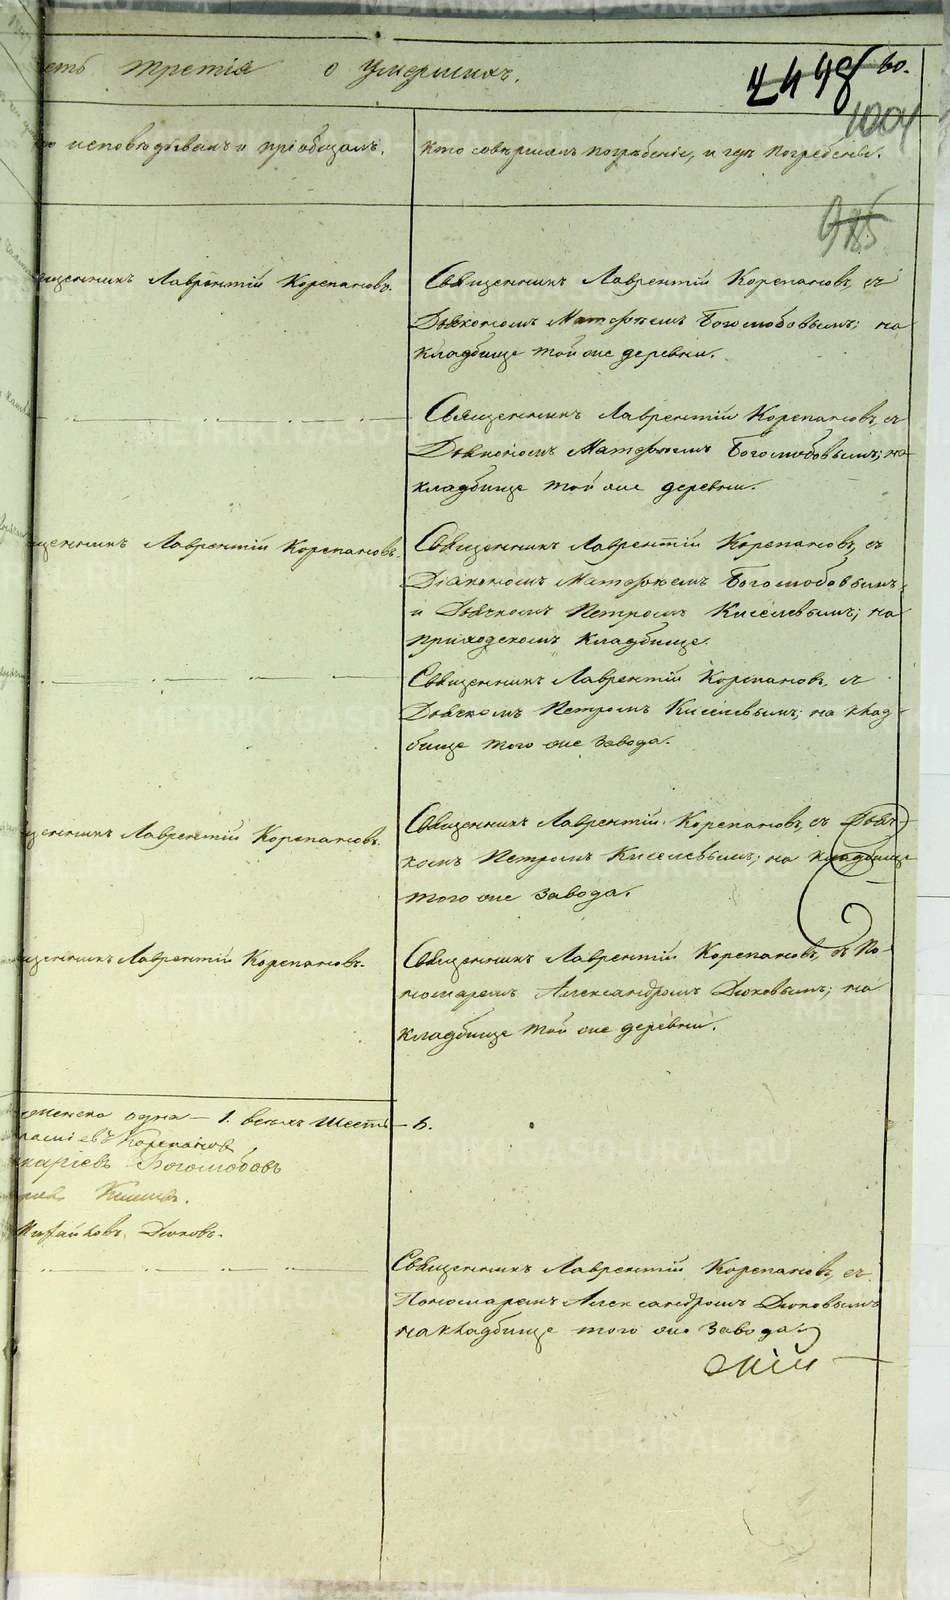 METRIKI.GASO-URAL.RU
есть третія о умершихъ.
60.
1004
985
исповѣдывалъ и пріобщалъ.
Кто совершалъ погрѣбеніе, и гдѣ погребены.
щенникъ Лаврентій Корепановъ.
Священникъ Лаврентій Корепановъ, съ
Дьякономъ Матфѣемъ Боголюбовымъ; на
кладбище той же деревни.
Священникъ Лаврентій Корепановъ, съ
Дьякономъ Матфѣемъ Боголюбовымъ; на
кладбище той же деревни.
щенникъ Лаврентій Корепановъ.
Священникъ Лаврентій Корепановъ, съ
Діакономъ Матфѣемъ Боголюбовымъ,
и Дьячкомъ Петромъ Киселевымъ; на
приходскомъ кладбище.
Священникъ Лаврентій Корепановъ, съ
Дьячкомъ Петромъ Киселевымъ; на клад-
бище того же завода.
щенникъ Лаврентій Корепановъ.
Священникъ Лаврентій Корепановъ, съ Дьяч-
комъ Петромъ Киселевымъ; на кладбище
того же завода.
щенникъ Лаврентій Корепановъ.
Священникъ Лаврентій Корепановъ, съ По-
номаремъ Александромъ Дюковымъ; на
кладбище той же деревни.
женска одна — 1. всѣхъ шесть — 6.
Корепановъ
Боголюбовъ
Дюковъ.
Священникъ Лаврентій Корепановъ, съ
Пономаремъ Александромъ Дюковымъ
на кладбище того же завода.